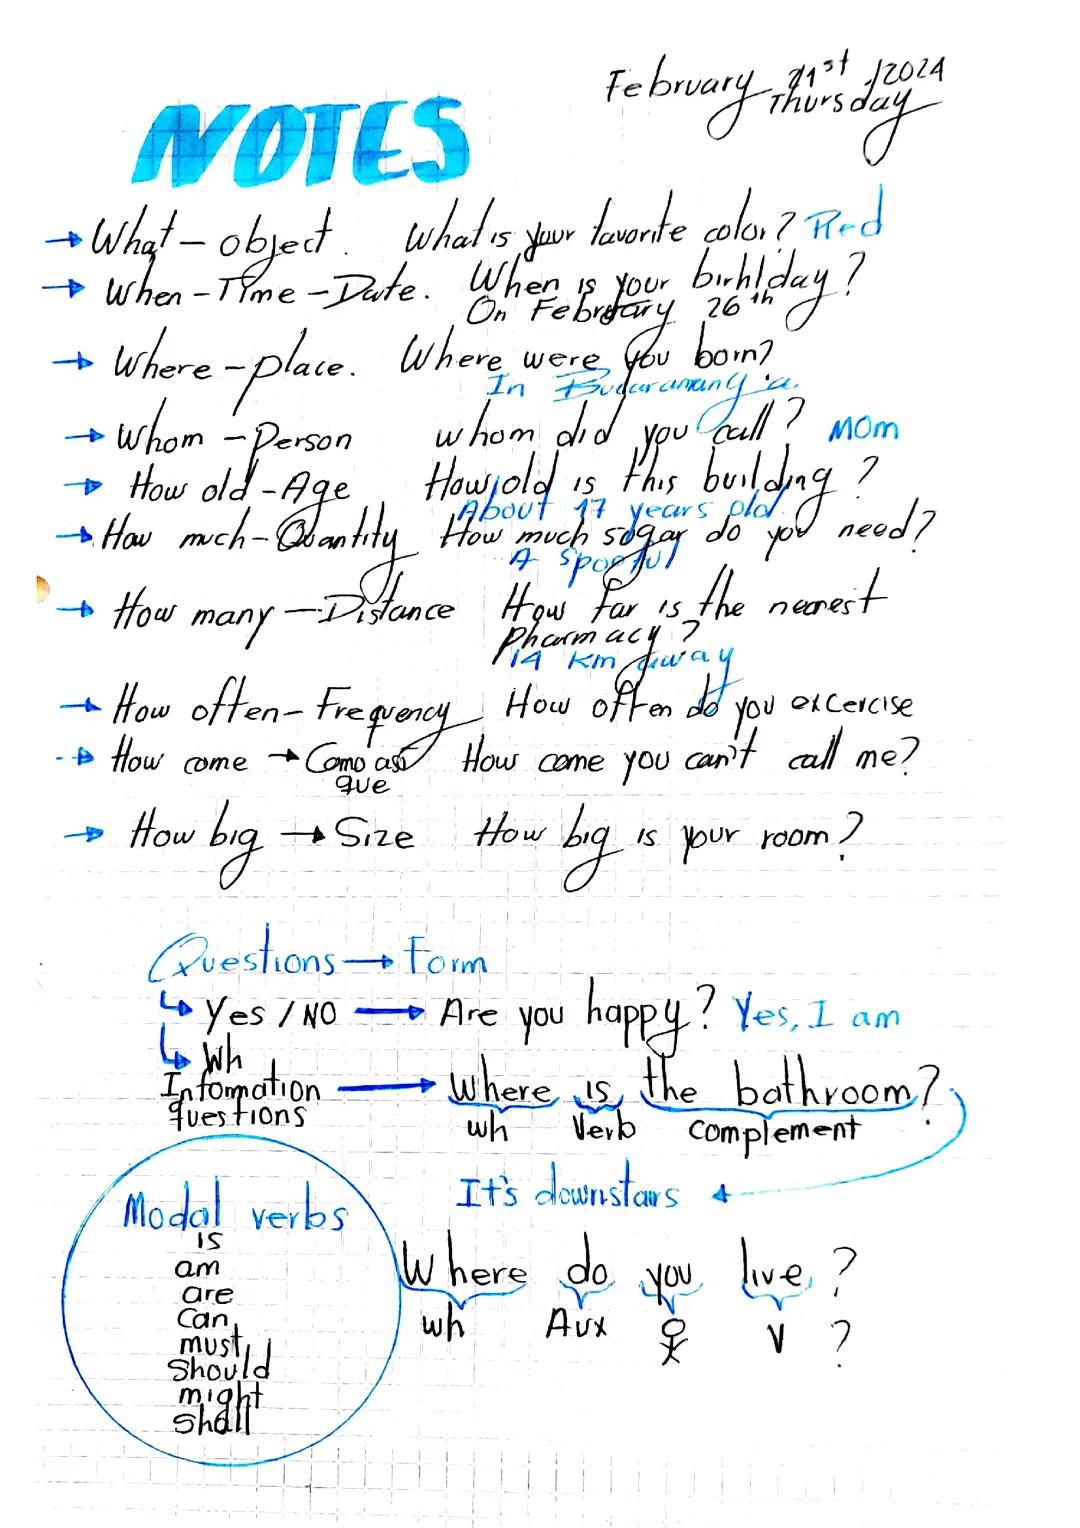 February 21st /2024
Thursday
NOTES
→ What - object. What is your favorite color? Red
→ When - Time - Date. When is your birhtday?
On February 26th
→ Where - place. Where were you born?
In Bucaramanga.
→ Whom - Person whom did you call? Mom
→ How old - Age How old is this building?
About 17 years old.
→ How much - Quantity How much sogar do you need?
A spoonful
→ How many - Distance How far is the nearest
pharmacy?
14 Km away
→ How often - Frequency How often do you excercise
→ How come → Como asi que How come you can't call me?
→ How big → Size How big is your room?
Questions → Form
↳ Yes / NO → Are you happy? Yes, I am
↳ Wh
Information
questions → Where is the bathroom?
wh Verb complement
It's downstairs
Modal verbs
is
am
are
can
must
should
might
shall
Where do you live?
wh Aux V ?